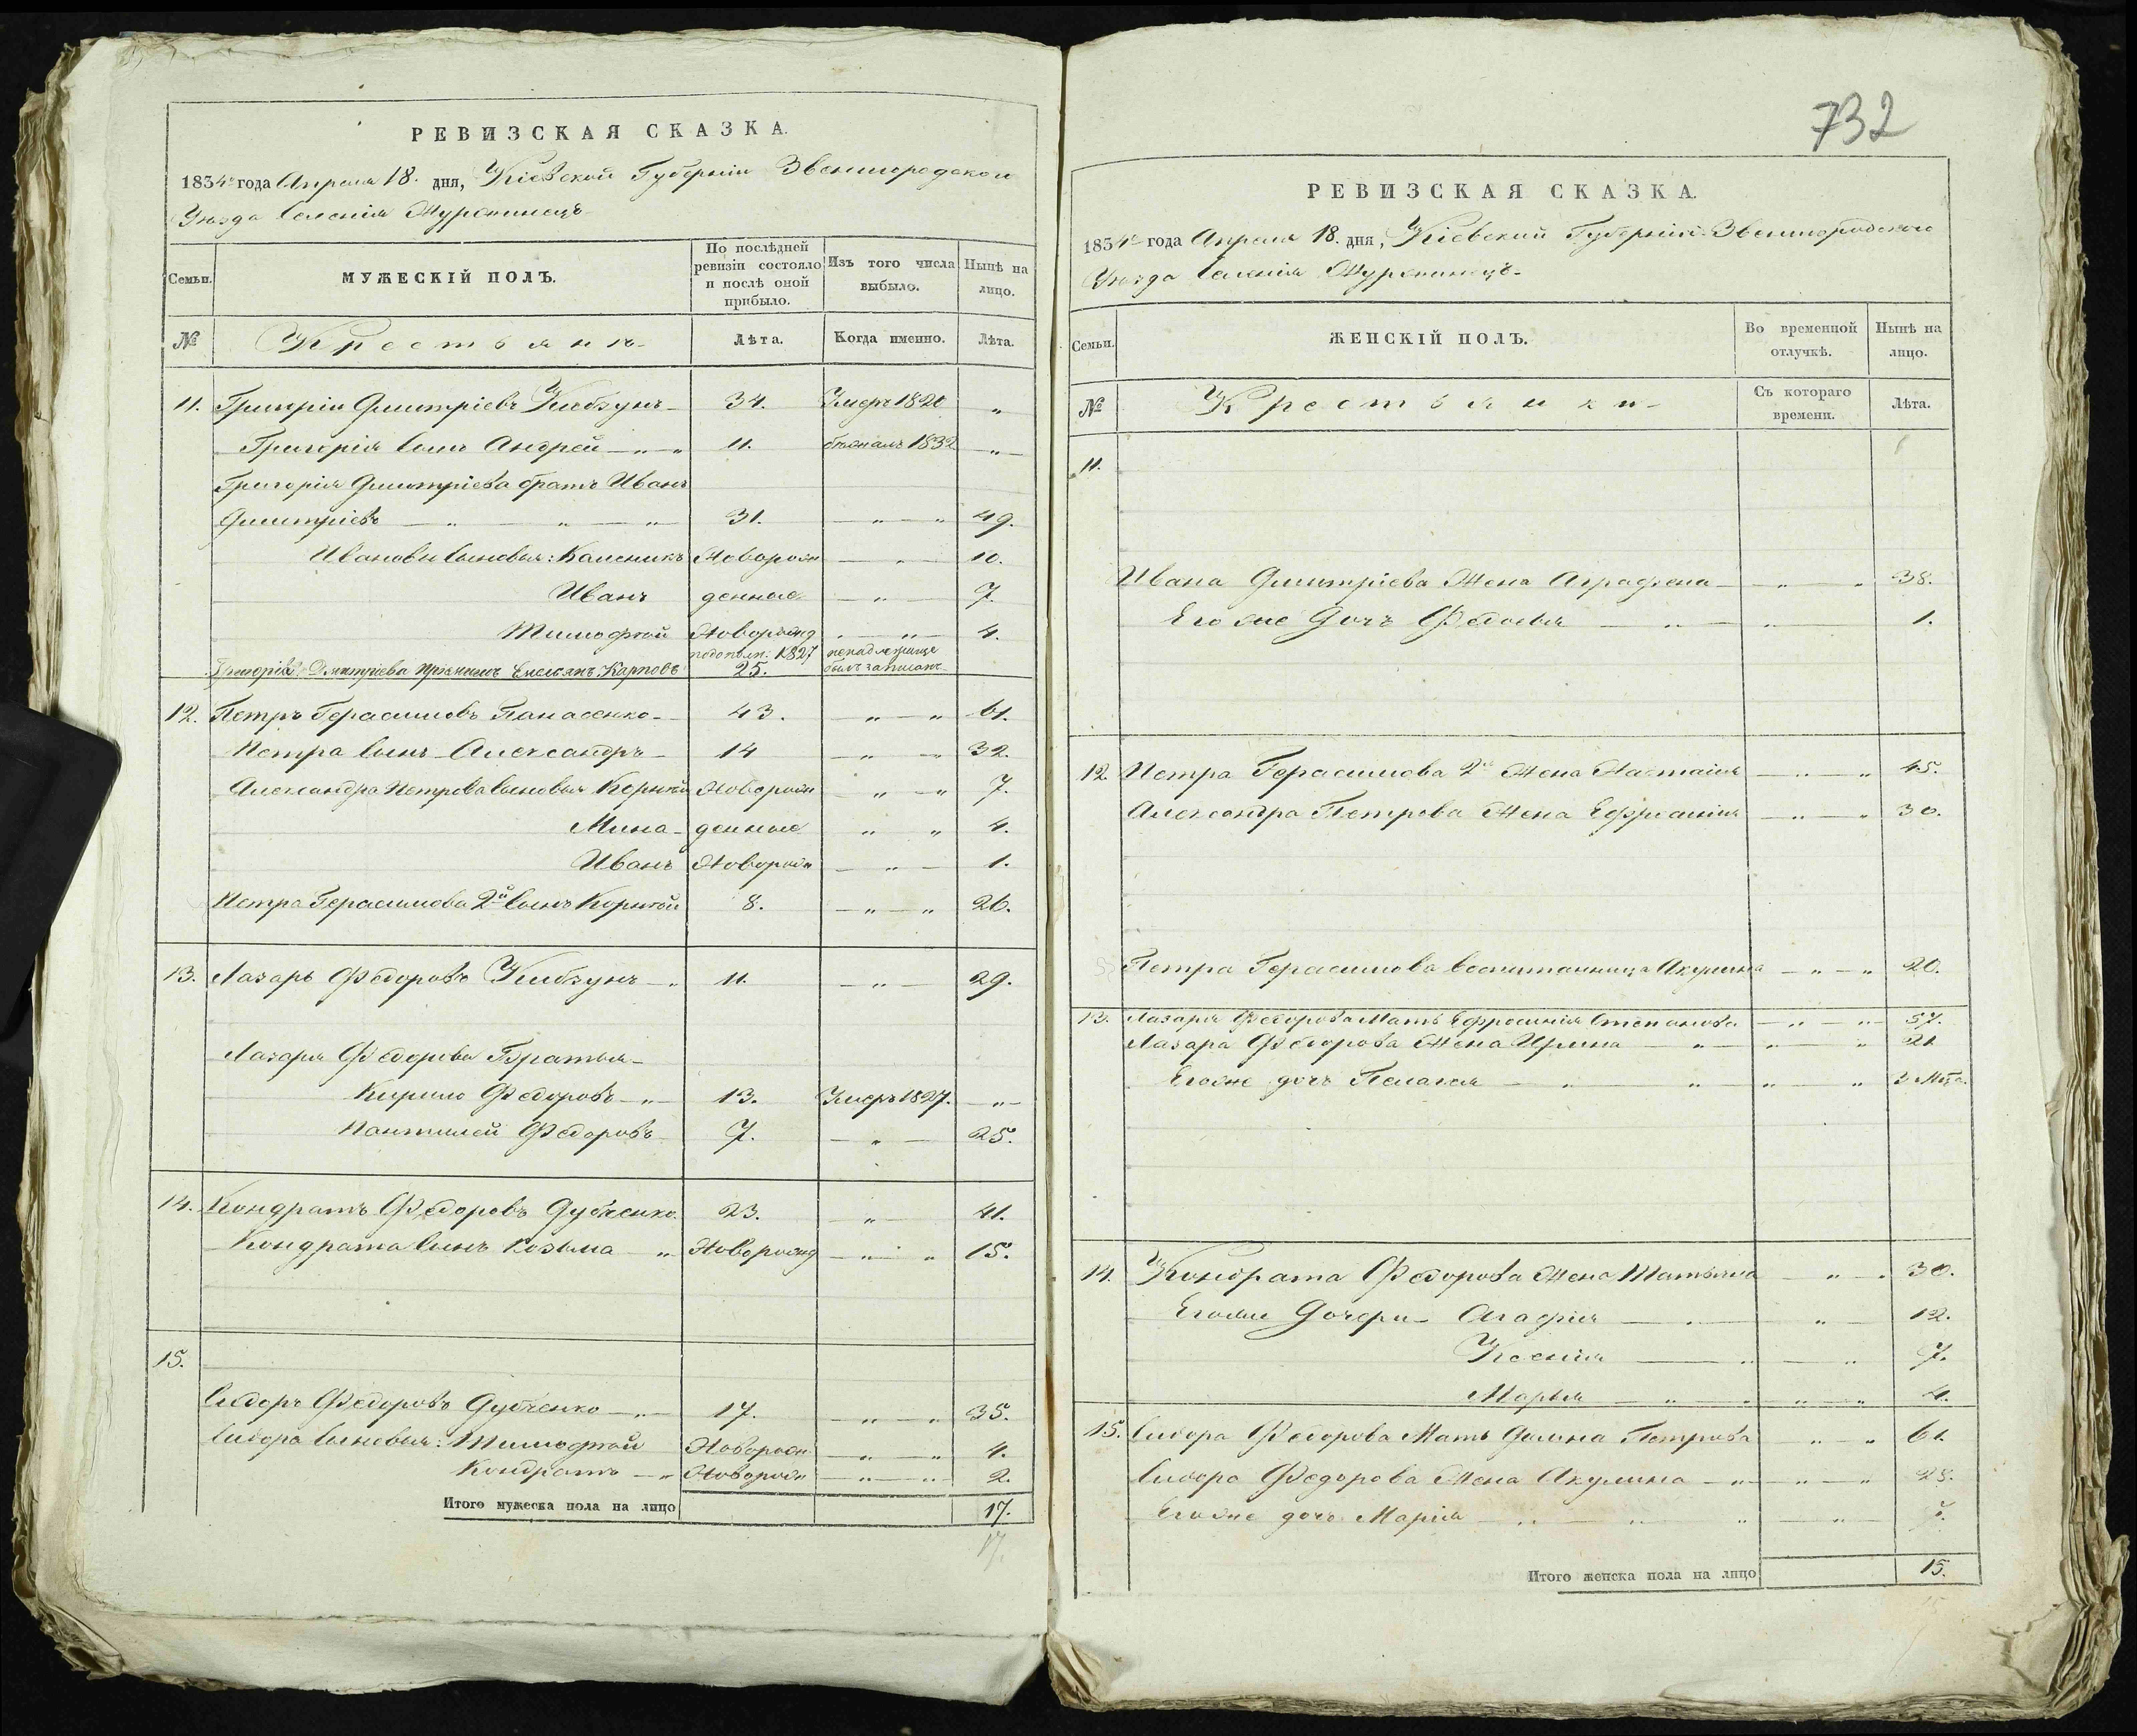 РЕВИЗСКАЯ СКАЗКА.
1834го года Апреля 18. дня, Кіевской Губерніи Звенигородского
Уезда Селенія Журжинецъ
Семьи.
МУЖЕСКІЙ ПОЛЪ.
По послѣдней ревизіи состояло и послѣ оной прибыло.
Изъ того числа выбыло.
Нынѣ на лицо.
№ Крестьянъ Лѣта. Когда именно. Лѣта.
11. Григорій Дмитріевъ 34. Умеръ 1820 „
Григорія Сынъ Андрей 11. бежалъ 1832 „
Григорія Дмитріева братъ Иванъ
Дмитріевъ 31. „ 49.
Ивановы Сыновья: Каленикъ Новорож 10.
Иванъ денные „ 7.
Тимофей Новорожд „ 4.
подополн: 1827
Григорія Дмитріева Емельянъ Карповъ 25. былъ записанъ
12. Петръ Герасимовъ Панасенко 43. „ 61.
Петра Сынъ Александръ 14 „ 32.
Александра Петрова Сыновья Корней Новорож „ 7.
Мина денные „ 4.
Иванъ Новорож „ 1.
Петра Герасимова 2й Сынъ Корней 8. „ 26.
13. Лазарь Федоровъ 11. „ 29.
Лазаря Федорова Братья
Кирило Федоровъ 13. Умеръ 1827. „
Пантилей Федоровъ 7. „ 25.
14. Кондратъ Федоровъ Дубченко 23. „ 41.
Кондрата Сынъ Козьма Новорожд „ 15.
15.
Сидоръ Федоровъ Дубченко 17. „ 35.
Сидора Сыновья: Тимофей Новорож „ 4.
Кондратъ Новорож „ 2.
Итого мужеска пола на лицо 17.
17.
732
РЕВИЗСКАЯ СКАЗКА.
1834го года Апреля 18. дня, Кіевской Губерніи Звенигородского
Уезда Селенія Журжинецъ
Семьи.
ЖЕНСКІЙ ПОЛЪ.
Во временной отлучкѣ.
Нынѣ на лицо.
№ Крестьянки Съ котораго времени. Лѣта.
11.
Ивана Дмитріева Жена Аграфена „ 38.
Егоже Дочъ Федосья „ 1.
12. Петра Герасимова 2я Жена Настасія „ 45.
Александра Петрова Жена Ефросинія „ 30.
Петра Герасимова воспитанница Акулина „ 20.
13. Лазаря Федорова Мать Ефросинія Степанова „ 57.
Лазаря Федорова Жена Ирина „ 21.
Егоже дочъ Пелагея „ 3 Мца.
14. Кондрата Федорова Жена Татьяна „ 30.
Егоже Дочери Агафія „ 12.
Ксенія „ 7.
Марья „ 4.
15. Сидора Федорова Мать Петрова „ 61.
Сидора Федорова Жена Акулина „ 28.
Егоже дочъ Марія „
Итого женска пола на лицо 15.